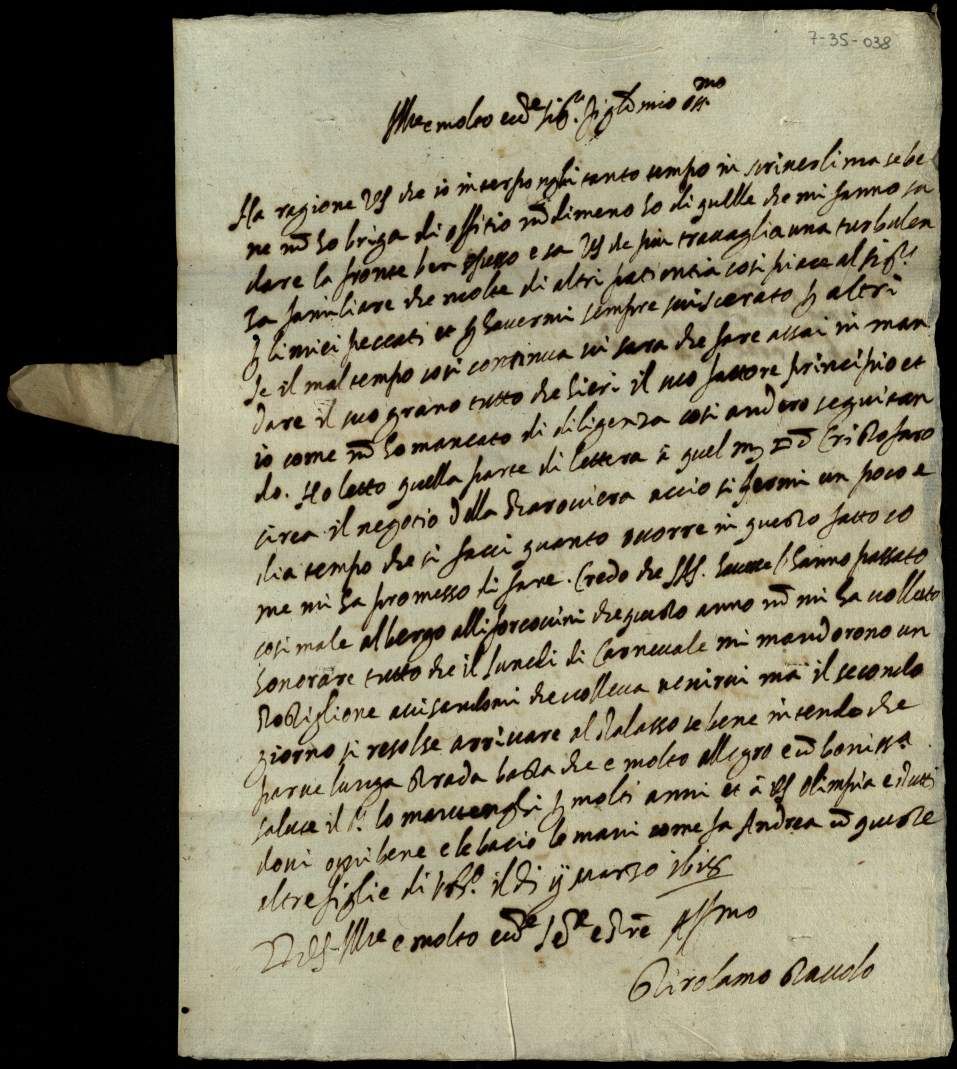 7-35-038
Ill.re e molto ecc.te sig.r figlio mio oss.mo
Ha ragione VS che io interponghi tanto tempo in scriverli ma se be
ne nō ho briga di offitio nōdimeno ho di quelle che mi fanno su
dare la fronte ben spesso e sa VS che più travaglia una turbulen
za famigliare che molte di altri patientia cosi piace al sig.r
p li miei peccati et p havermi sempre sviscerato p altri
Se il mal tempo cosi continua vi sara che fare assai in man
dare il suo grano tutto che hieri il suo fattore principio et
io come nō ho mancato di diligenza cosi andero seguitan
do. Ho letto quella parte di lettera à quel Cristofaro
circa il negotio della accio si fermi un poco e
dia tempo che si facci quanto ocorre in questo fatto co
me mi ha promesso di fare. Credo che hanno passato
cosi male albergo alli che questo anno nō mi ha volluto
honorare tutto che il lunedi di Carnevale mi mandorono un
Postiglione avisandomi che volleva venirvi ma il secondo
giorno si resolse arrivare al Palasso se bene intendo che
parve lunga strada basta che e molto allegro e cō boniss.a
salute il S.r lo mantenghi p molti anni et à VS Olimpia e tutti
doni ogni bene e le bacio le mani come fa Andrea cō queste
altre figlie di il di ij Marzo 1618
D VS Ill.re e molto ecc.te aff.mo
Girolamo